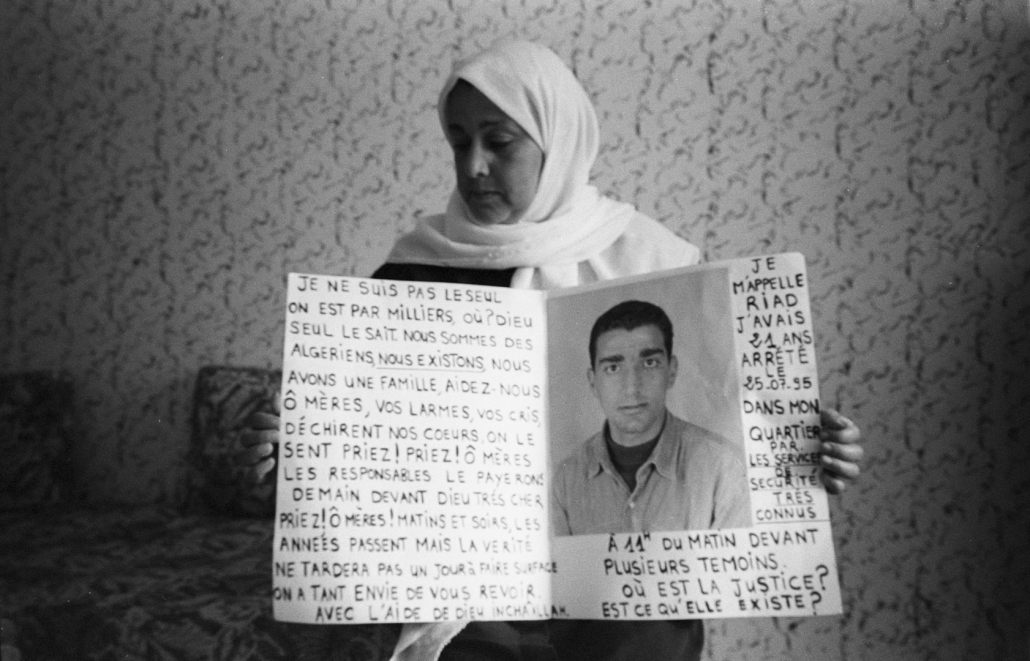 JE NE SUIS PAS LE SEUL
ON EST PAR MILLIERS, OÙ? DIEU
SEUL LE SAIT. NOUS SOMMES DES
ALGERIENS, NOUS EXISTONS, NOUS
AVONS UNE FAMILLE, AIDEZ-NOUS
Ô MÈRES, VOS LARMES, VOS CRIS,
DÉCHIRENT NOS COEURS, ON LE
SENT PRIEZ! PRIEZ! Ô MÈRES
LES RESPONSABLES LE PAYERONS
DEMAIN DEVANT DIEU TRÉS CHER
PRIEZ! Ô MÈRES! MATINS ET SOIRS, LES
ANNEÉS PASSENT MAIS LA VERITÉ
NE TARDERA PAS UN JOUR À FAIRE SURFACE
ON A TANT ENVIE DE VOUS REVOIR.
AVEC L'AIDE DE DIEU INCHA'ALLAH.
JE
M'APPELLE
RIAD
J'AVAIS
21 ANS
ARRÊTÉ
LE
25.07.95
DANS MON
QUARTIER
PAR
LES SERVICES
DE
SECURITÉ
TRÉS
CONNUS
À 11H DU MATIN DEVANT
PLUSIEURS TEMOINS.
OÙ EST LA JUSTICE?
EST CE QU'ELLE EXISTE?